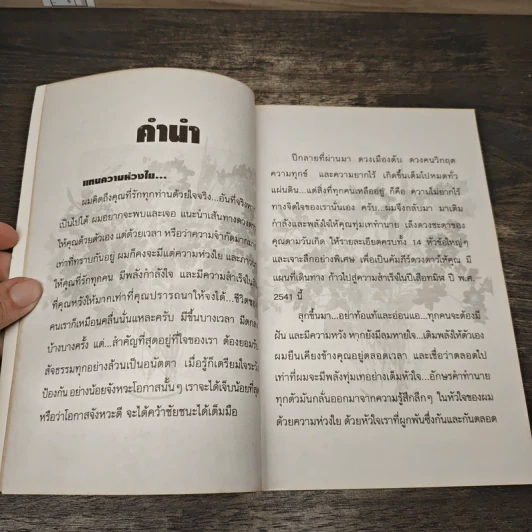 คำนำ
แทนความห่วงใย...
ผมคิดถึงคุณที่รักทุกท่านด้วยใจจริง...อันที่จริง
เป็นไปได้ ผมอยากจะพบและเจอ แนะนำเส้นทางดวง
ให้คุณด้วยตัวเอง แต่ด้วยเวลา หรือว่าความจำกัด
เท่าที่ทราบกันอยู่ ผมก็คงจะมีแต่ความห่วงใย
ให้คุณที่รักทุกคน มีพลังกำลังใจ และมีความสำเร็จ
ที่คุณหวังให้มากเท่าที่คุณปรารถนาให้จงได้...ชีวิต
คนเราก็เหมือนคลื่นนั่นแหละครับ มีขึ้นบางเวลา
บ้างบางครั้ง แต่...สำคัญที่สุดอยู่ที่ใจของเรา ต้องยอม
สัจธรรมทุกอย่างล้วนเป็นอนัตตา เมื่อรู้ก็เตรียมใจ
ป้องกัน อย่างน้อยจังหวะโอกาสนั้นๆ เราจะได้เจ็บน้อยที่สุด
หรือว่าโอกาสจังหวะดี จะได้คว้าชัยชนะได้เต็มมือ
ปีกลายที่ผ่านมา ดวงเมืองดับ ดวงคนวิกฤต
ความทุกข์ และความยากไร้ เกิดขึ้นเต็มไปหมดทั่ว
แผ่นดิน...แต่สิ่งที่ทุกคนเหลืออยู่ ก็คือ ความไม่ยากไร้
ทางจิตใจของเรานั่นเอง ครับ...ผมจึงกลับมา มาเติม
กำลังและพลังใจให้คุณทุ่มเททำนาย เล็งดวงชะตาของ
คุณตามวันเกิด ให้รายละเอียดครบทั้ง 14 หัวข้อใหญ่ๆ
และเจาะลึกอย่างพิเศษ เพื่อเป็นคัมภีร์ดวงดาให้คุณ มี
แผนที่เดินทาง ก้าวไปสู่ความสำเร็จในปีเสือทมิฬ ปี พ.ศ.
2541 นี้
ลูกขึ้นมา...อย่าท้อแท้และอ่อนแอ...ทุกคนจะต้องมี
ฝัน และมีความหวัง หากยังมีลมหายใจ...เติมพลังให้ตัวเอง
ผมยืนเคียงข้างคุณอยู่ตลอดเวลา และเชื่อว่าตลอดไป
เท่าที่ผมจะมีพลังทุ่มเทอย่างเต็มหัวใจ...อักษรคำทำนาย
ทุกตัวมันกลั่นออกมาจากความรู้สึกลึกๆ ในหัวใจของผม
ด้วยความห่วงใย ด้วยหัวใจเราที่ผูกพันซึ่งกันและกันตลอด